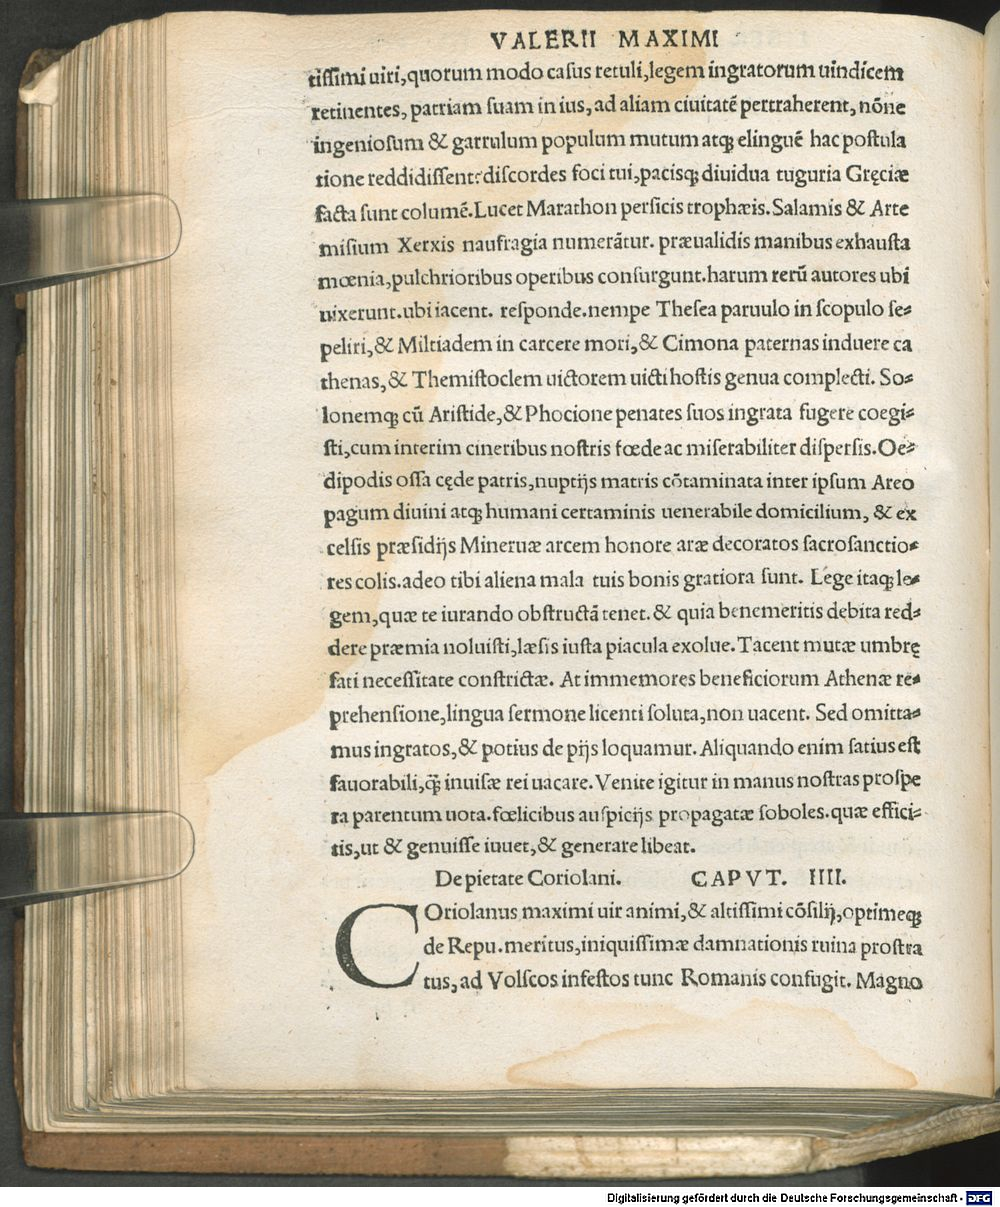 VALERII MAXIMI
tiſſimi uiri,quorum modo caſus retuli,legem ingratorum uindicem
retinentes, patriam ſuam in ius, ad aliam ciuitatē pertraherent, nōne
ingenioſum & garrulum populum mutum atq; elinguē hac poſtula
tione reddidiſſent:diſcordes foci tui,pacisq; diuidua tuguria Gręciæ
facta ſunt columē.Lucet Marathon perſicis trophæis. Salamis & Arte
miſium Xerxis naufragia numerātur. præualidis manibus exhauſta
mœnia,pulchrioribus operibus conſurgunt.harum rerū autores ubi
uixerunt.ubi iacent. reſponde.nempe Theſea paruulo in ſcopulo ſe⸗
peliri,& Miltiadem in carcere mori,& Cimona paternas induere ca
thenas,& Themiſtoclem uictorem uicti hoſtis genua complecti. So⸗
lonemq; cū Ariſtide,& Phocione penates ſuos ingrata fugere coegi⸗
ſti,cum interim cineribus noſtris fœde ac miſerabiliter diſperſis.Oe⸗
dipodis oſſa cęde patris,nuptijs matris cōtaminata inter ipſum Areo
pagum diuini atq; humani certaminis uenerabile domicilium, & ex
celſis præſidijs Mineruæ arcem honore aræ decoratos ſacroſanctio⸗
res colis.adeo tibi aliena mala tuis bonis gratiora ſunt. Lege itaq; le⸗
gem,quæ te iurando obſtructā tenet.& quia benemeritis debita red⸗
dere præmia noluiſti,læſis iuſta piacula exolue.Tacent mutæ umbrę
fati neceſſitate conſtrictæ. At immemores beneficiorum Athenæ re⸗
prehenſione,lingua ſermone licenti ſoluta,non uacent. Sed omitta⸗
mus ingratos,& potius de pijs loquamur. Aliquando enim ſatius eſt
fauorabili,q̃ inuiſæ rei uacare. Venite igitur in manus noſtras proſpe
ra parentum uota.fœlicibus auſpicijs propagatæ ſoboles.quæ effici⸗
tis,ut & genuiſſe iuuet,& generare libeat.
De pietate Coriolani. CAPVT. IIII.
COriolanus maximi uir animi,& altiſſimi cōſilij,optimeq;
de Repu.meritus,iniquiſſimæ damnationis ruina proſtra
tus,ad Volſcos infeſtos tunc Romanis confugit. Magno
Digitalisierung gefördert durch die Deutsche Forschungsgemeinschaft - DFG